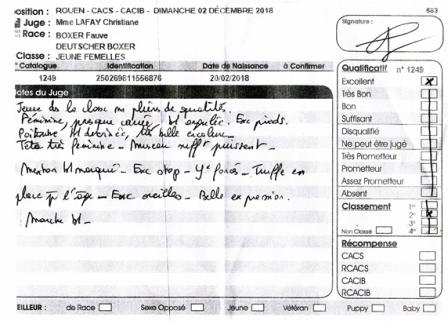 osition : ROUEN - CACS - CACIB - DIMANCHE 02 DÉCEMBRE 2018
683
Juge : Mme LAFAY Christiane
Signature :
Race : BOXER Fauve
DEUTSCHER BOXER
Classe : JEUNE FEMELLES
° Catalogue Identification Date de Naissance à Confirmer
1249 250269811556876 20/02/2018
Qualificatif n° 1249
Excellent
Très Bon
Bon
Suffisant
Disqualifié
Ne peut être jugé
Très Prometteur
Prometteur
Assez Prometteur
Absent
Classement 1er
2e
3e
Non Classé 4e
Récompense
CACS
RCACS
CACIB
RCACIB
otes du Juge
Jeune de la classe pleins de qualités.
Féminine, presque carrée, bl Exc pieds.
Poitrine bl belle
Tête féminine - Museau puissant -
Menton bl marqué - Exc stop - Truffe en
place l'âge - Exc oreilles - Belle expression.
Marche bl -
EILLEUR : de Race Sexe Opposé Jeune Vétéran Puppy Baby